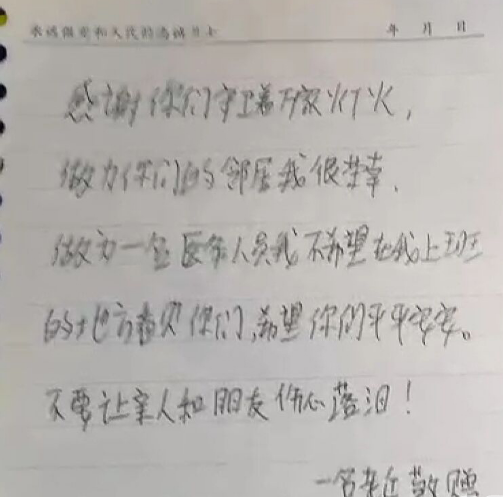 年 月 日
感谢你们守卫着万家灯火，
做为你们的邻居我很荣幸、
做为一名医务人员我不希望在我上班
的地方看见你们，希望你们平平安安。
不要让亲人和朋友伤心落泪！
一名 敬赠